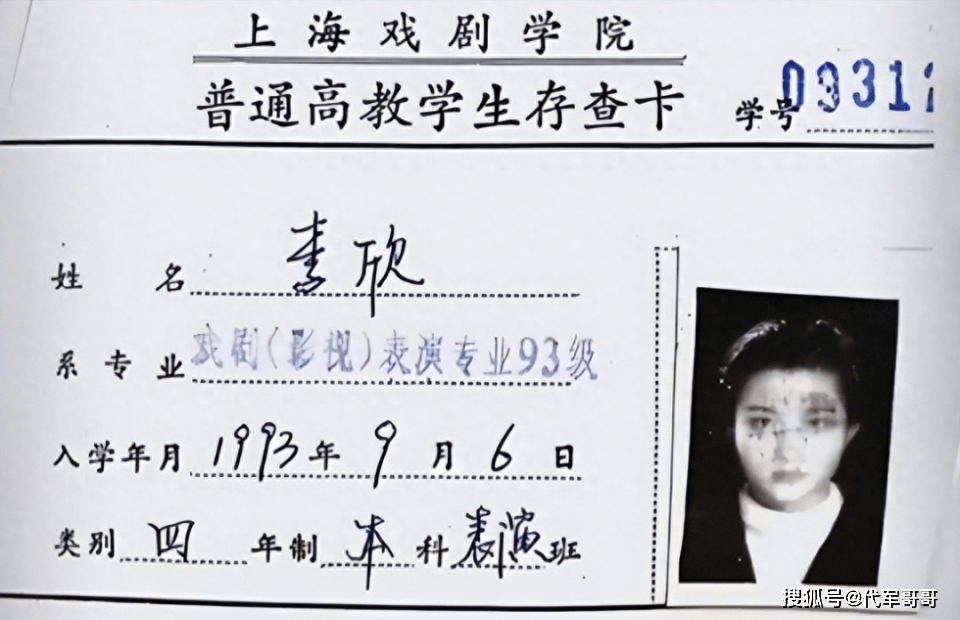 上海戏剧学院
普通高教学生存查卡
学号 09312
姓名 李欣
系专业 戏剧(影视)表演专业93级
入学年月 1993年9月6日
类别 四年制 本科 表演班
搜狐号@代军哥哥